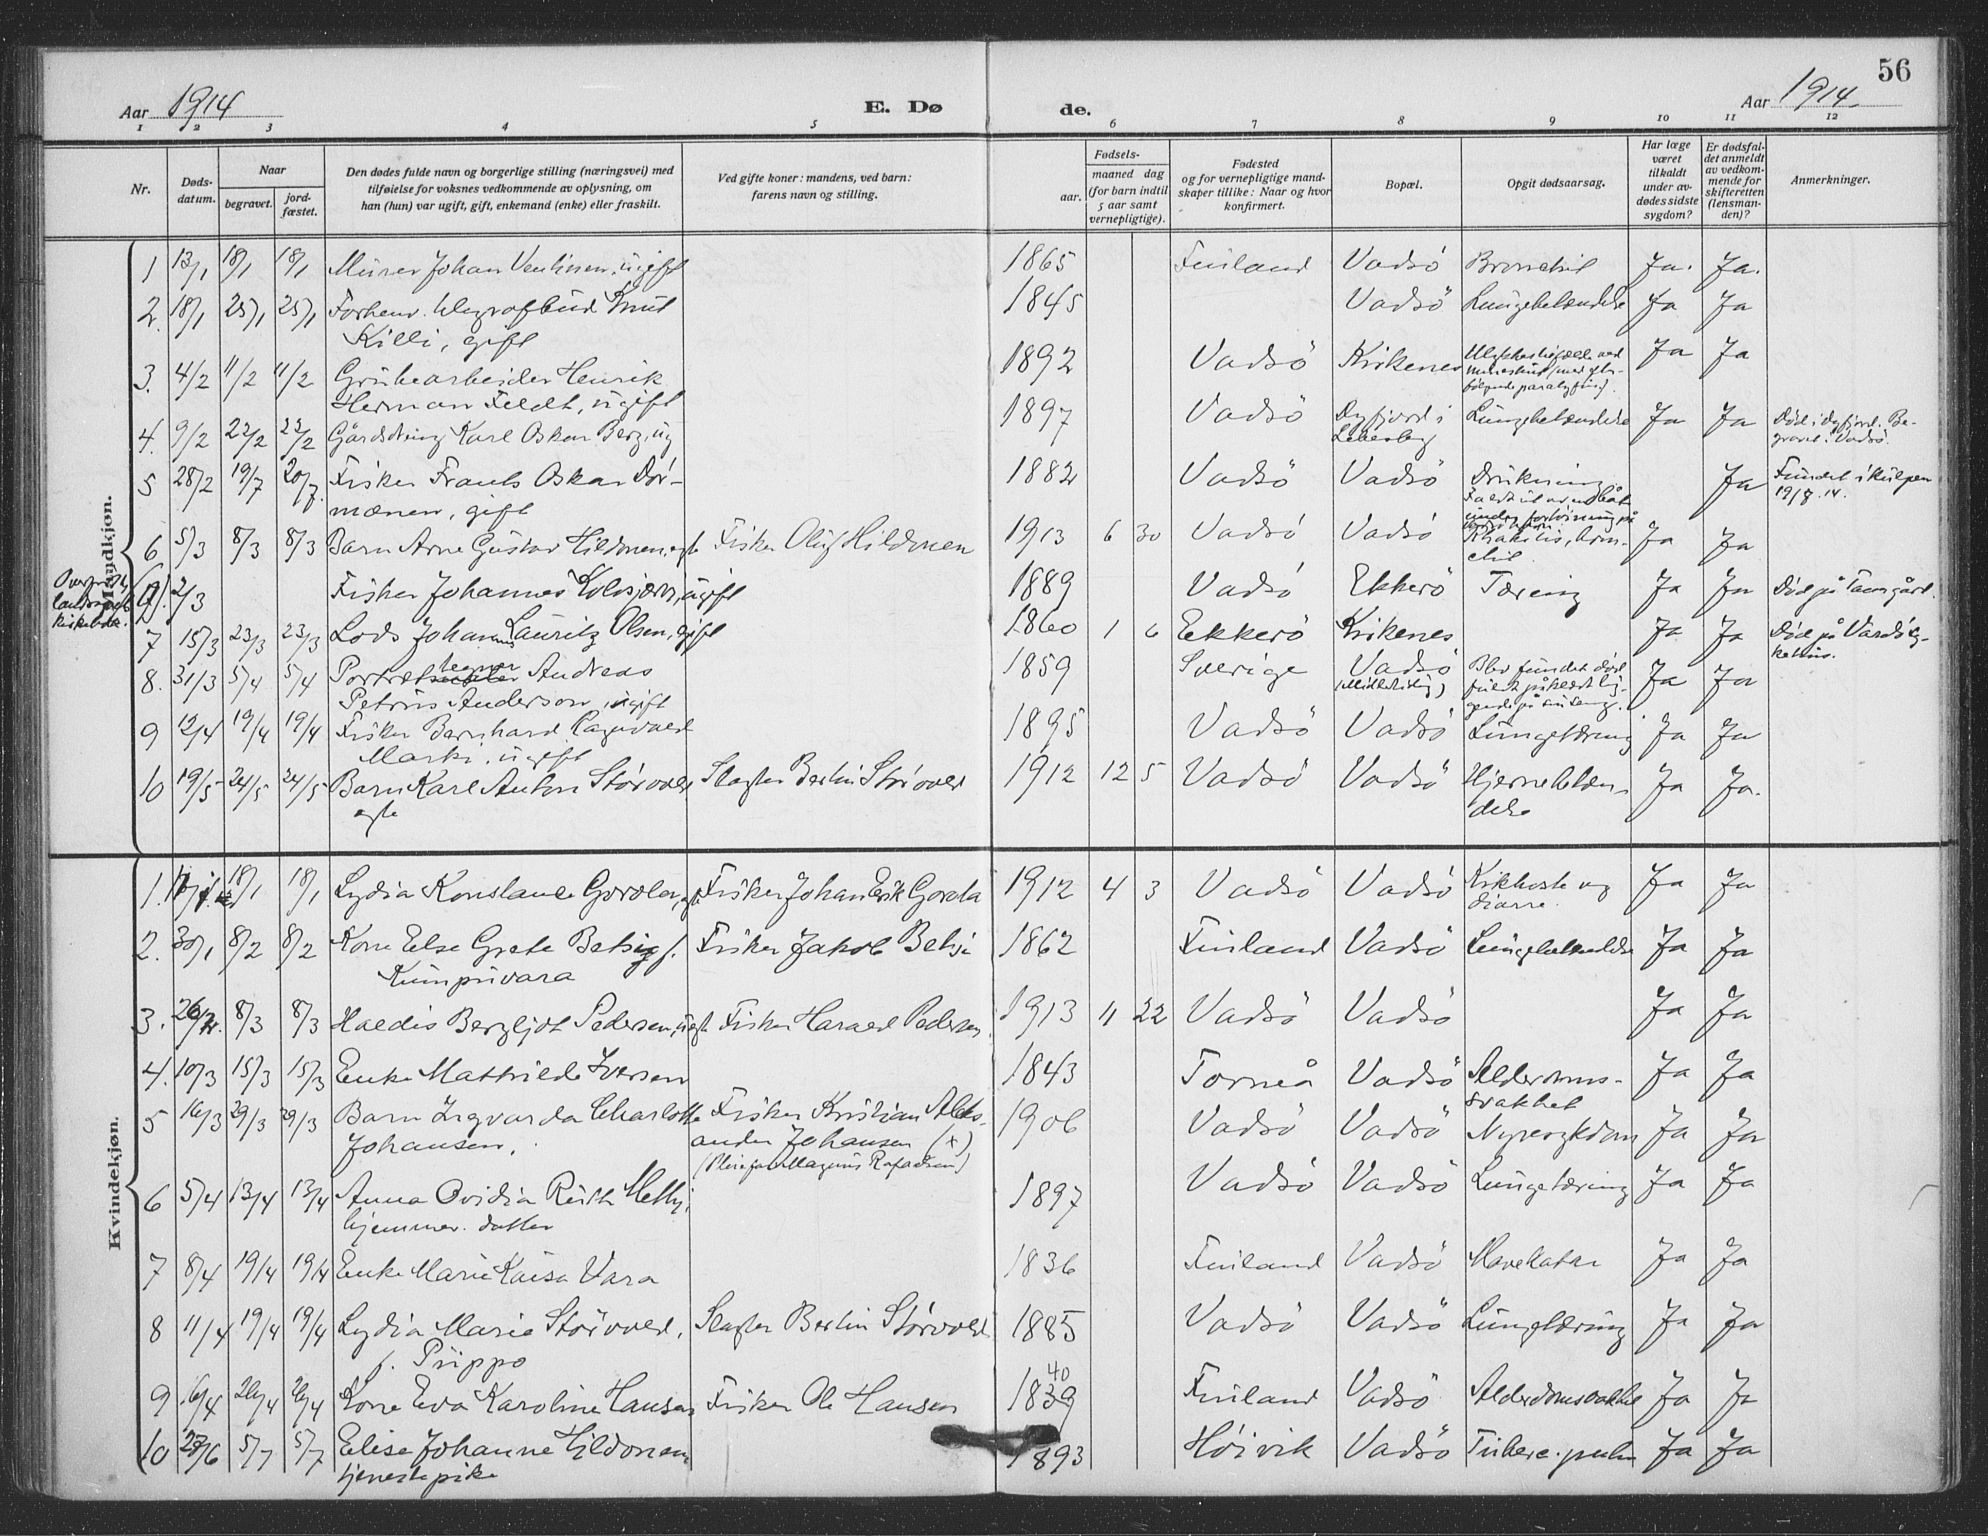 56
Aar 1914
E. Dø de.
Aar 1914
1 2 3 4 5 6 7 8 9 10 11 12
Nr.
Døds-
datum.
Naar
begravet.
jord-
fæstet.
Den dødes fulde navn og borgerlige stilling (næringsvei) med
tilføielse for voksnes vedkommende av oplysning, om
han (hun) var ugift, gift, enkemand (enke) eller fraskilt.
Ved gifte koner: mandens, ved barn:
farens navn og stilling.
Fødsels-
aar.
maaned dag
(for barn indtil
5 aar samt
vernepligtige).
Fødested
og for vernepligtige mand-
skaper tillike: Naar og hvor
konfirmert.
Bopæl.
Opgit dødsaarsag.
Har læge
været
tilkaldt
under av-
dødes sidste
sygdom?
Er dødsfal-
det anmeldt
av vedkom-
mende for
skifteretten
(lensman-
den)?
Anmerkninger.
Mandkjøn.
1 13/1 18/1 18/1 Murer Johan ugift 1865 Finland Vadsö Bronchit Ja. Ja.
2. 18/1 25/1 25/1 Forhenv. Knut 1845 Vadsö Lungebetændelse Ja Ja
Killi, gift
3. 4/2 11/2 11/2 Grubearbeider Henrik 1892 Vadsö Kirkenes Ja Ja
Herman Feldt, ugift
4. 9/2 22/2 22/2 Karl Oskar Berg, ug 1897 Vadsö Dyfjord i Lungebetændelse Ja Ja Död i dyfjord. Be-
Lebesby gravet i Vadsö.
5 28/2 19/7 20/7. Fisker Frants Oskar Dör- 1882 Vadsö Vadsö Drukning. Ja Fundet i
mænen, gift 19/7.14.
6 5/3 8/3 8/3 Barn Arne Gustav Hildonen, egte Fisker Oluf Hildonen 1913 6 30 Vadsö Vadsö Ja Ja
2/3 Fisker Johannes ugift 1889 Vadsö Ekkerö Tæring Ja Ja Död på
7 15/3 23/3 23/3 Lods Johannes Lauritz Olsen, gift 1860 1 6 Ekkerö Kirkenes Ja Ja Död på Vardö
8. 31/3 5/4 5/4 Portrættegner Andreas 1859 Sverige Vadsö Blev fundet död Ja Ja
Petrus Anderson, ugift
9 12/4 19/4 19/4 Fisker Bernhard Ragnvald 1895 Vadsö Vadsö Lungetæring Ja Ja
Marki, ugift
10 19/5 24/5 24/5 Barn Karl Anton Störvold Slagter Berlin Störvold 1912 12 5 Vadsö Vadsö Hjernebetæn- Ja Ja.
egte delse
Kvindekjøn.
1. 18/1 18/1 Lydia Konstanse Fisker Johan Erik 1912 4 3 Vadsö Vadsö Kikhoste og Ja Ja
diarre.
2. 30/1 8/2 8/2 Kone Else Grete Betsi f. Fisker Jakob Betsi 1862 Finland Vadsö Lungebetændelse Ja Ja
Kumpuvara
3. 26/2. 8/3 8/3 Haldis Bergljot Pedersen, Fisker Harald Pedersen 1913 11 22 Vadsö Vadsö Ja Ja
4. 10/3 15/3 15/3 Enke Mathilde Iversen 1843 Torneå Vadsö Alderdoms- Ja Ja
svakhet
5 16/3 29/3 29/3 Barn Ingvarda Charlotte Fisker Kristian Aleks- 1906 Vadsö Vadsö Nyresykdom Ja Ja
Johansen. ander Johansen (+)
6 5/4 13/4 13/4 Anna Ovidia Ruth 1897 Vadsö Vadsö Lungetæring Ja Ja
hjemmev. datter
7 8/4 19/4 19/4 Enke Marie Kaisa Vara 1836 Finland Vadsö Mavekatar Ja Ja
8 11/4 19/4 19/4 Lydia Marie Störvold, Slagter Berlin Störvold 1885 Vadsö Vadsö Lungetæring Ja Ja
f. Puppo
9 16/4 26/4 26/4 Kone Eva Karoline Hansen Fisker Ole Hansen 1839 40 Finland Vadsö Alderdomssvakhet Ja Ja
10 5/7 5/7 Elise Johanne Hildonen 1893 Höivik Vadsö Tuberc. pulm Ja Ja
tjenestepike